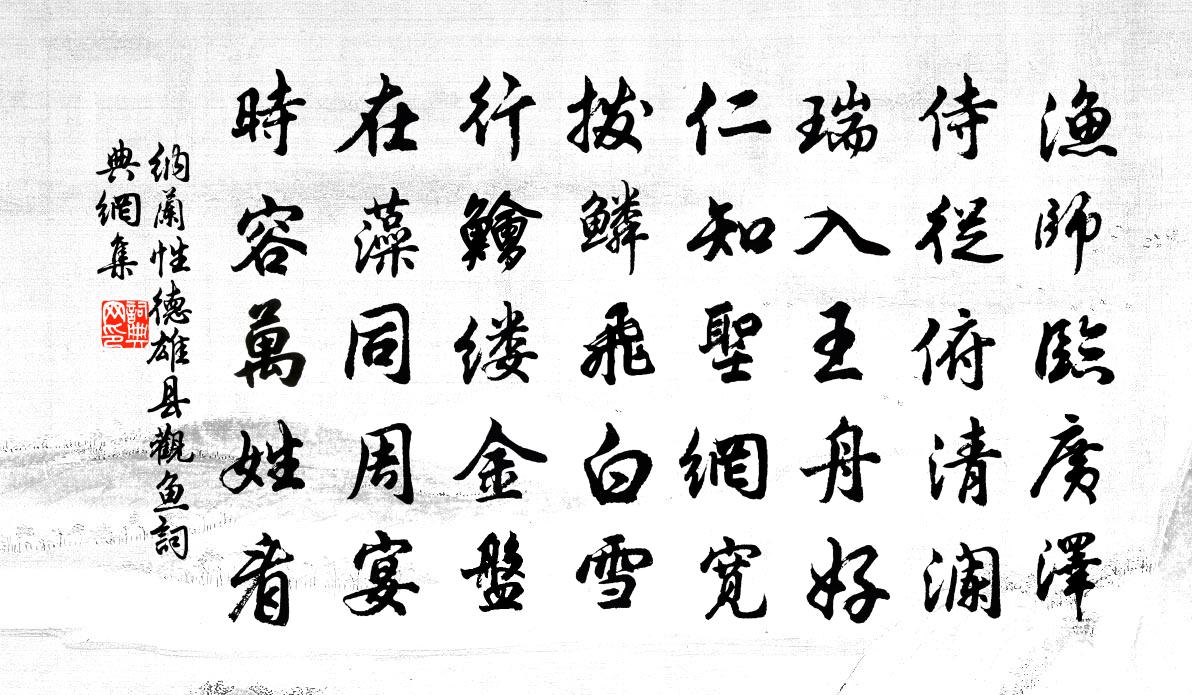 渔師臨廣澤
侍從俯清澜
瑞入王舟好
仁知聖網宽
拨鱗飛白雪
行鱠缕金盤
在藻同周宴
時容萬姓看
納蘭性德雄县觀魚詞
典網集
詞典网印